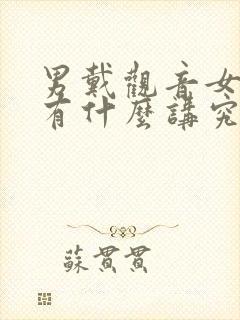 男戴觀音女
有什麼講究
蘇貫貫